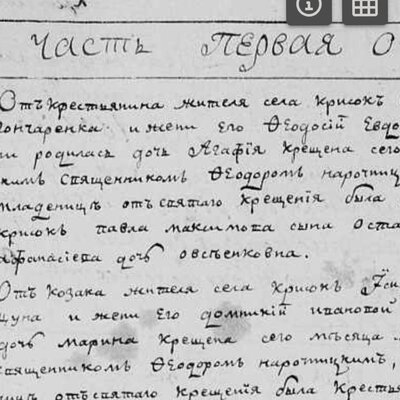 Часть Первая О
Отъ крестьянина жителя села крисокъ
гончаренка и жени его Ѳеодосіи Евдо
ни родилась дочь Агафія крещена сего
кимъ священникомъ Ѳеодоромъ нарочтиц
младеницѣ отъ святаго крещенія была
крисокъ павла максимова сына оста
афанасіева дочь овсѣенковна.
Отъ козака жителя села крисокъ
цуна и жени его домникіи ивановой
дочь марина крещена сего мѣсяца
священникомъ Ѳеодоромъ нарочтицкимъ,
отъ святаго крещенія была кресть